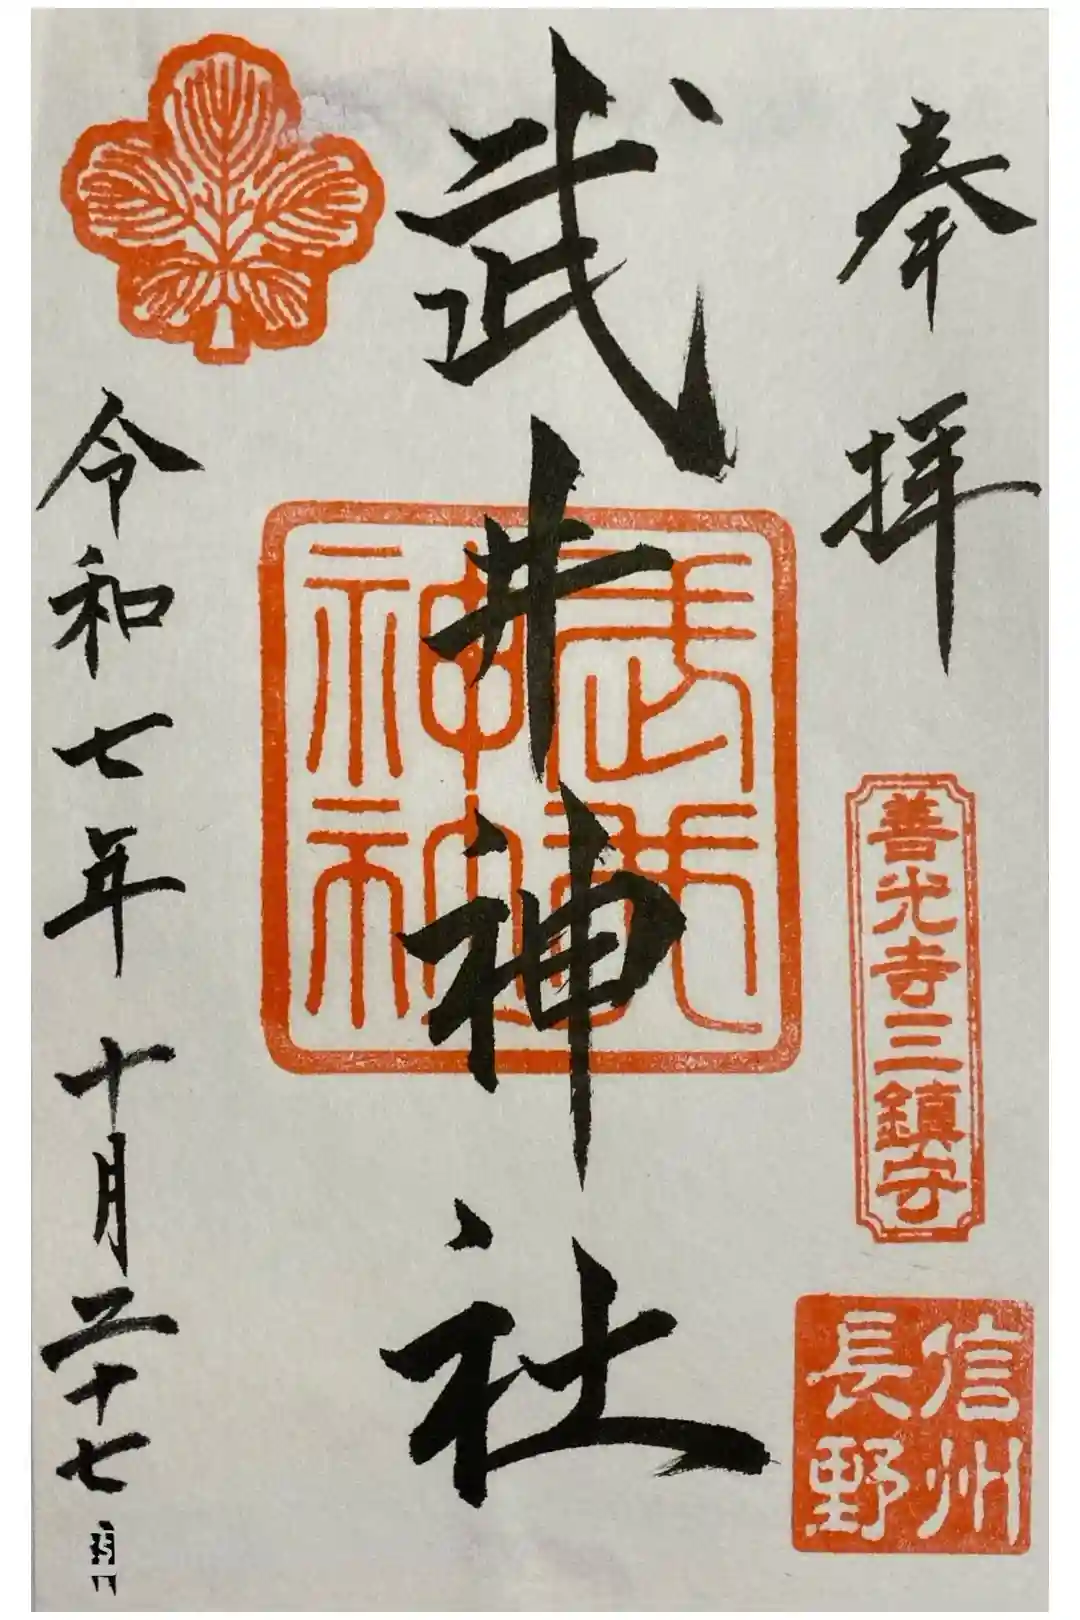 奉拝
善光寺三鎮守
信州
長野
武井神社
武井
神社
令和七年十月二十七